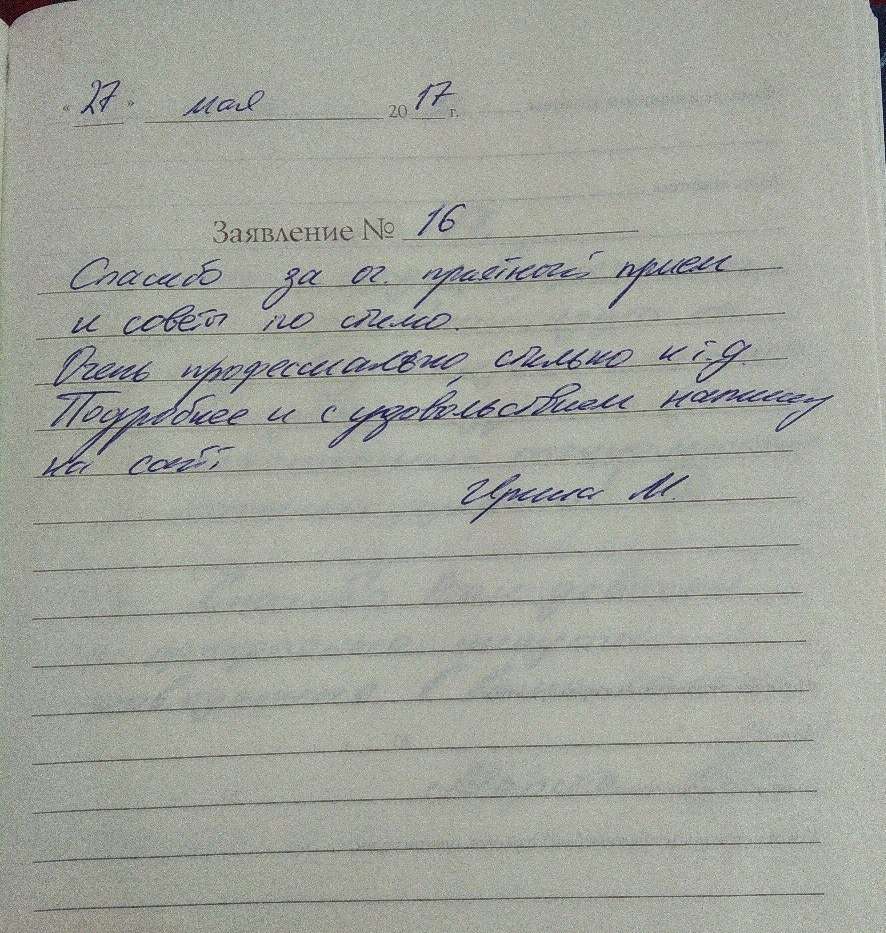 « 27 » мая 2017 г.
Заявление № 16
Спасибо за оч. приятный прием
и советы по стилю.
Очень профессиально, стильно и т.д.
Подробнее и с удовольствием напишу
на сайт
Ирина М.